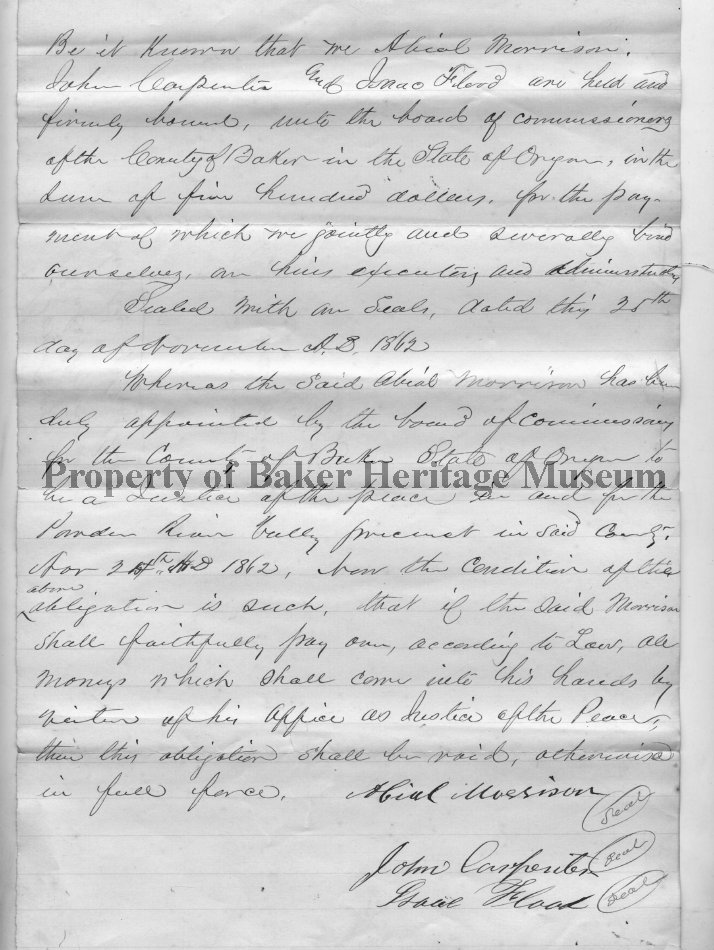 Be it Known that we Abial Morrison,
John Carpenter And Isaac Flood are held and
firmly bound, unto the board of commissioners
of the County of Baker in the State of Oregon, in the
sum of five hundred dollars, for the pay-
ment of which we jointly and severally bind
ourselves, our heirs executors and administrators
Sealed with our Seals, dated this 25th
day of November A.D. 1862
Whereas the said Abial Morrison has been
duly appointed by the board of Commissioners
for the County of Baker State of Oregon to
Property of Baker Heritage Museum
be a Justice of the peace in and for the
Powder River Vally precinct in said County.
Nov 24th AD 1862, Now the Condition of the
above
obligation is such, that if the said Morrison
shall faithfully pay over, according to Law, all
moneys which shall come into his hands by
virtue of his office as Justice of the Peace,
then this obligation shall be void, otherwise
in full force. Abial Morrison
Seal
John Carpenter Seal
Isaac Flood Seal